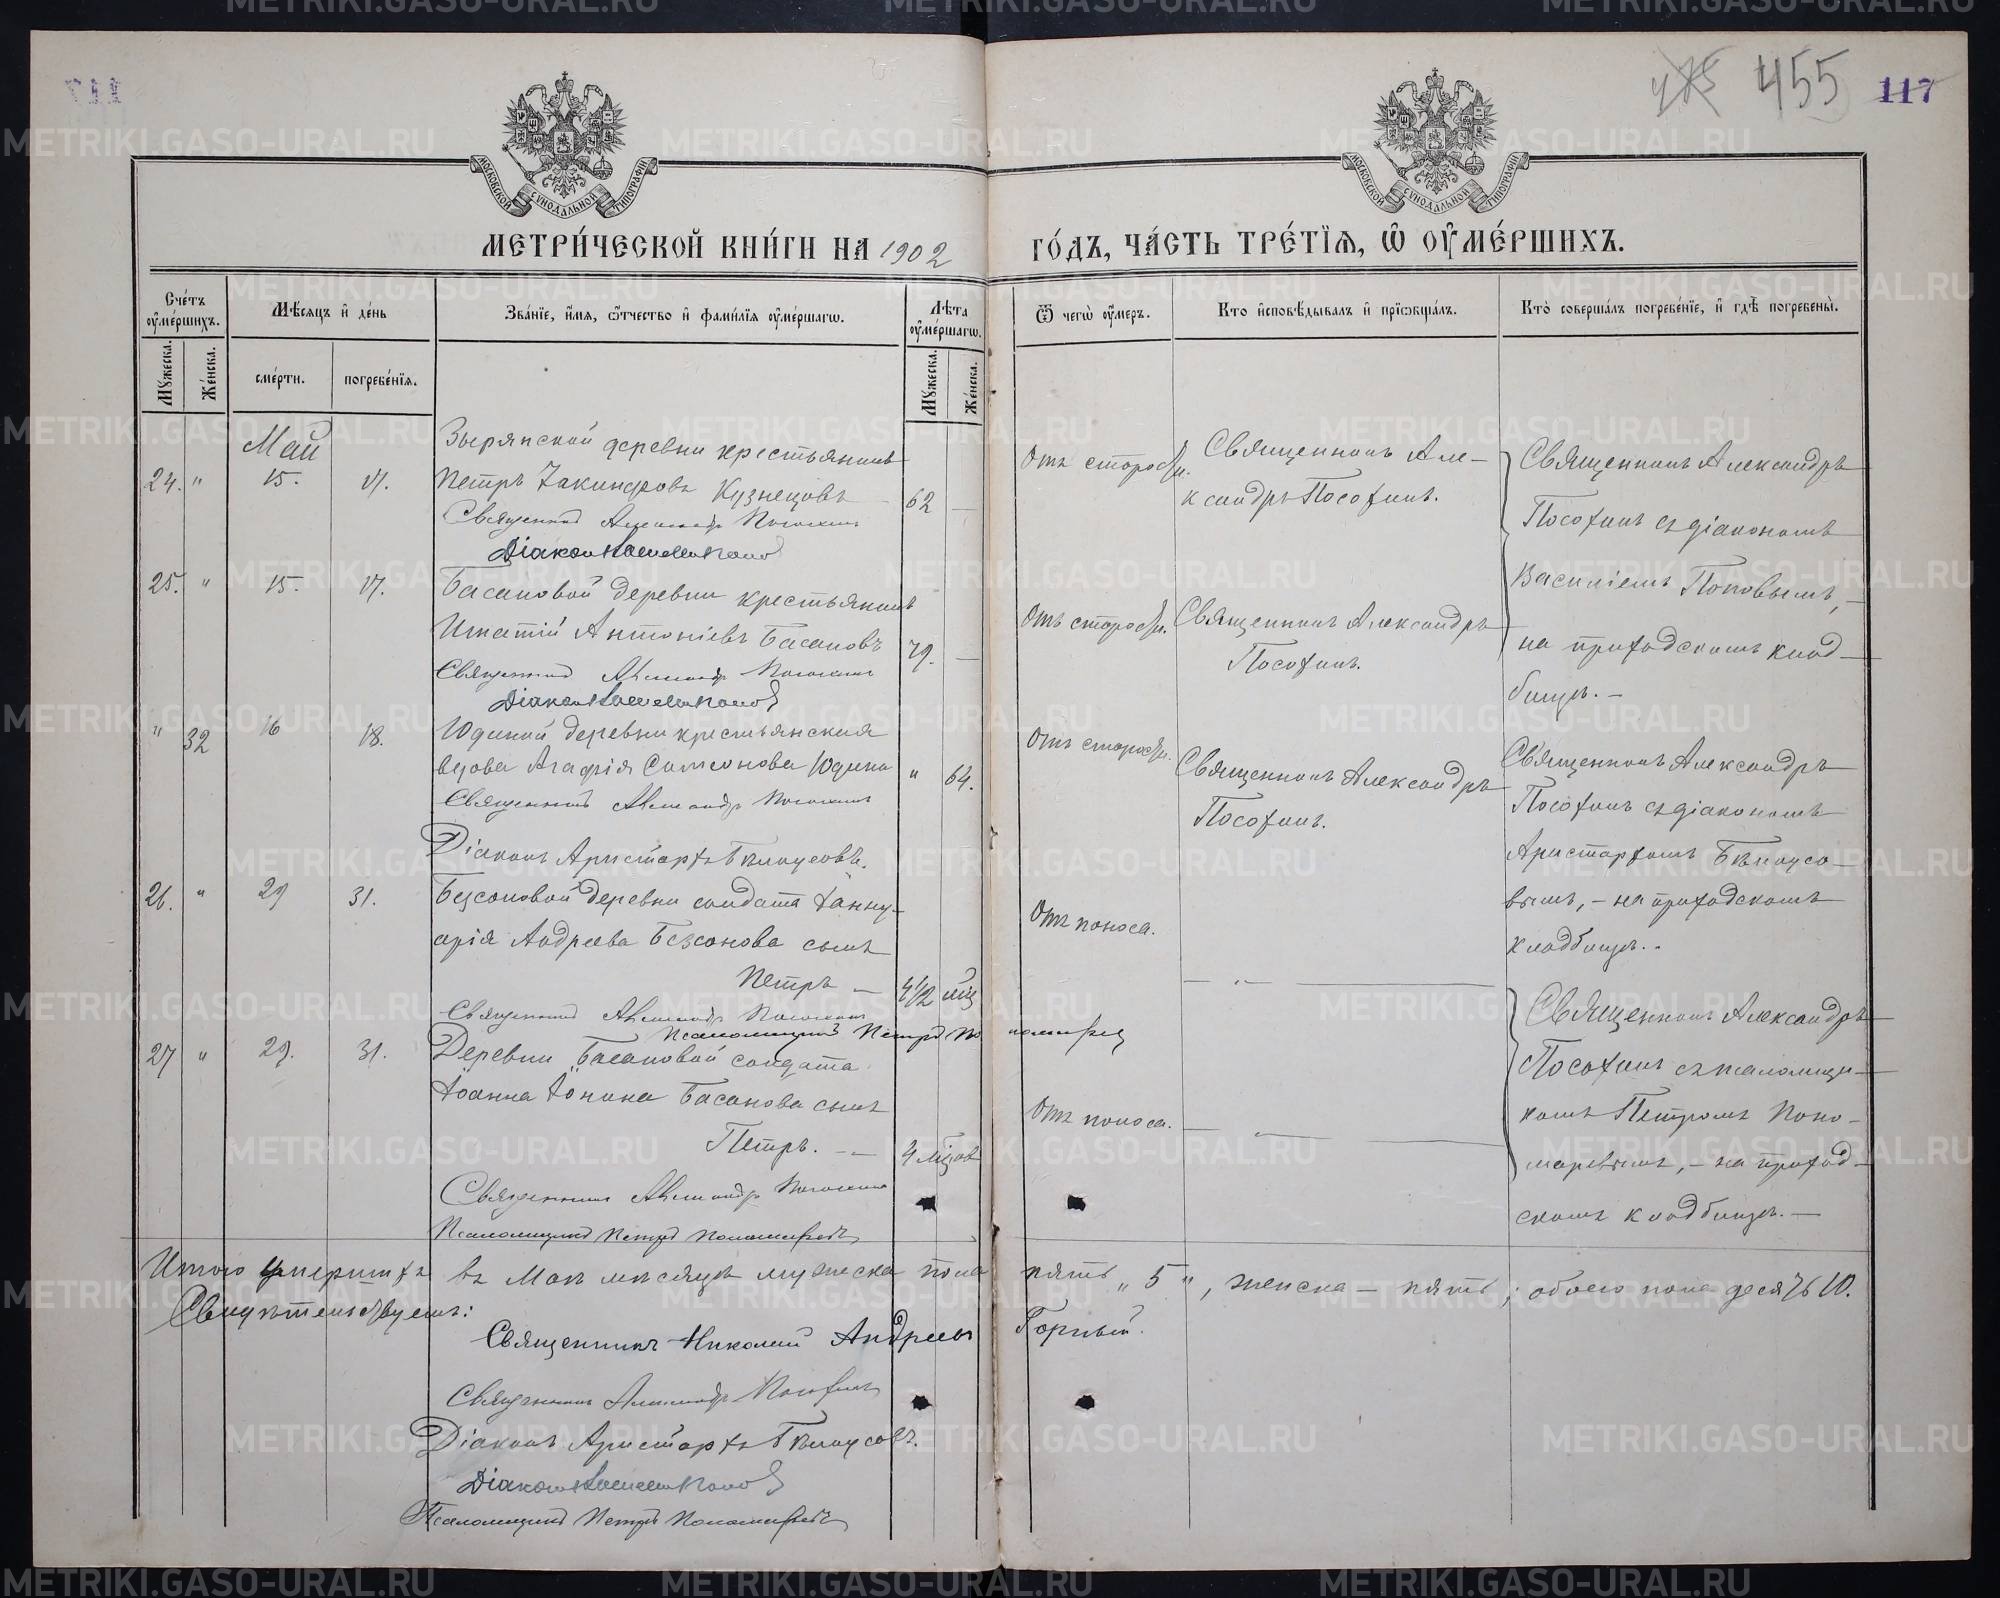 475 455 117
МОСКОВСКОЙ СѴНОДАЛЬНОЙ ТИПОГРАФІИ
МОСКОВСКОЙ СѴНОДАЛЬНОЙ ТИПОГРАФІИ
МЕТРИ́ЧЕСКОЙ КНИ́ГИ НА 1902 ГО́ДЪ, ЧА́СТЬ ТРЕ́ТЇѦ, Ѽ ОУ҆МЕ́РШИХЪ.
Сче́тъ оу҆ме́ршихъ.
Мꙋжеска.
Же́нска.
Мѣ́сѧцъ и҆ де́нь
сме́рти.
погребе́нїѧ.
Зва́нїе, и҆́мѧ, ѻ҆́тчество и҆ фами́лїѧ оу҆ме́ршагѡ.
Лѣ́та оу҆ме́ршагѡ.
Мꙋжеска.
Же́нска.
Ѿ чегѡ̀ оу҆́меръ.
Кто̀ и҆сповѣ́дывалъ и҆ прїѡбща́лъ.
Кто̀ соверша́лъ погребе́нїе, и҆ гдѣ̀ погребены̀.
Май
24. " 15. 17.
Зырянской деревни крестьянинъ
Петръ Іакинфовъ Кузнецовъ 62 —
Священникъ Александръ Посохинъ
Діаконъ Василій Поповъ
Отъ старости.
Священникъ Але-
ксандръ Посохинъ.
Священникъ Александръ
Посохинъ съ діакономъ
Василіемъ Поповымъ,
на приходскомъ клад-
бищѣ. —
25. " 15. 17.
Басановой деревни крестьянинъ
Игнатій Антоніевъ Басановъ 79. —
Священникъ Александръ Посохинъ
Діаконъ Василій Поповъ
Отъ старости.
Священникъ Александръ
Посохинъ.
" 32 16 18.
Юдиной деревни крестьянская
вдова Агафія Самсонова Юдина " 64.
Священникъ Александръ Посохинъ
Діаконъ Аристархъ Бѣлоусовъ.
Отъ старости.
Священникъ Александръ
Посохинъ.
Священникъ Александръ
Посохинъ съ діакономъ
Аристархомъ Бѣлоусо-
вымъ, — на приходскомъ
кладбищѣ. -
26. " 29 31.
Безсоновой деревни солдата Іанну-
арія Андреева Безсонова сынъ
Петръ — 4 1/2 мѣц
Священникъ Александръ Посохинъ
Псаломщикъ Петръ Пономаревъ
Отъ поноса.
— " —
Священникъ Александръ
Посохинъ съ псаломщи-
комъ Петромъ Поно-
маревымъ, — на приход-
скомъ кладбищѣ. —
27 " 29. 31.
Деревни Басановой солдата
Іоанна Іонина Басанова сынъ
Петръ. — 4 мѣцов
Священникъ Александръ Посохинъ
Псаломщикъ Петръ Пономаревъ
Отъ поноса.
— " —
Итого умершихъ въ Маѣ мѣсяцѣ мужеска пола пять „ 5 ", женска — пять; обоего пола десять 10.
Свидѣтельствуемъ:
Священникъ Николай Андреевъ Горный.
Священникъ Александръ Посохинъ
Діаконъ Аристархъ Бѣлоусовъ.
Діаконъ Василій Поповъ
Псаломщикъ Петръ Пономаревъ
METRIKI.GASO-URAL.RU